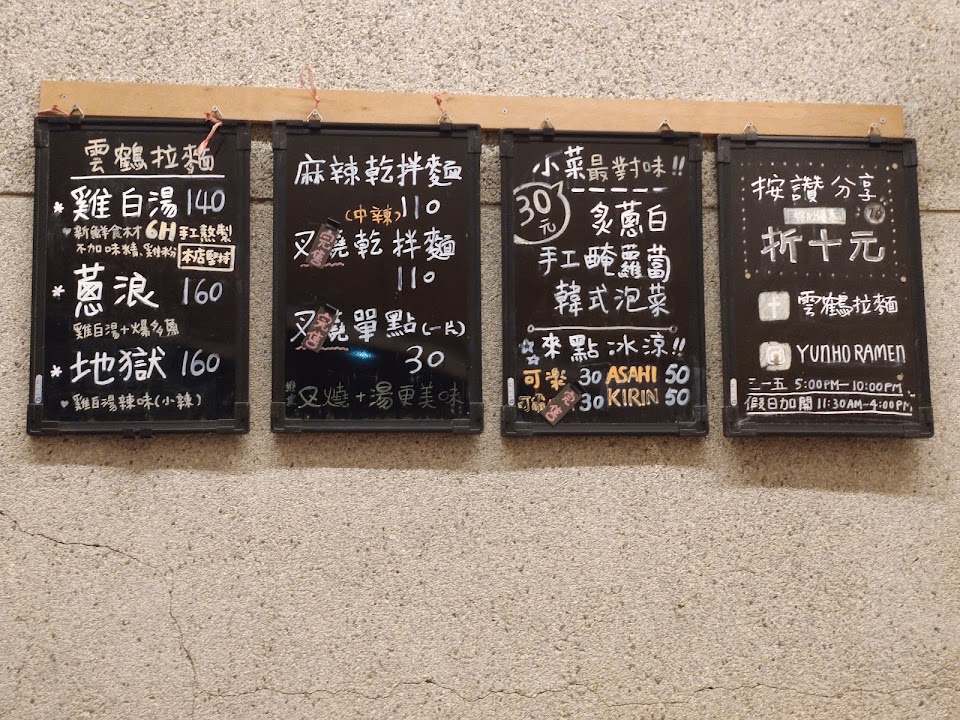 雲鶴拉麵
* 雞白湯 140
♥新鮮食材 6H 手工熬製
不加味精、雞粉 本店堅持
* 蔥浪 160
雞白湯+爆多蔥
* 地獄 160
♥雞白湯辣味(小辣)
麻辣乾拌麵
(中辣) 110
叉燒乾拌麵
完售
110
叉燒單點(一片)
完售
30
叉燒+湯更美味
小菜最對味!!
30元
炙蔥白
手工醃蘿蔔
韓式泡菜
來點冰涼!!
可樂 30 ASAHI 50
30 KIRIN 50
完售
按讚分享
折十元
雲鶴拉麵
YUNHO RAMEN
三一五 5:00PM—10:00PM
假日加開 11:30AM-4:00PM